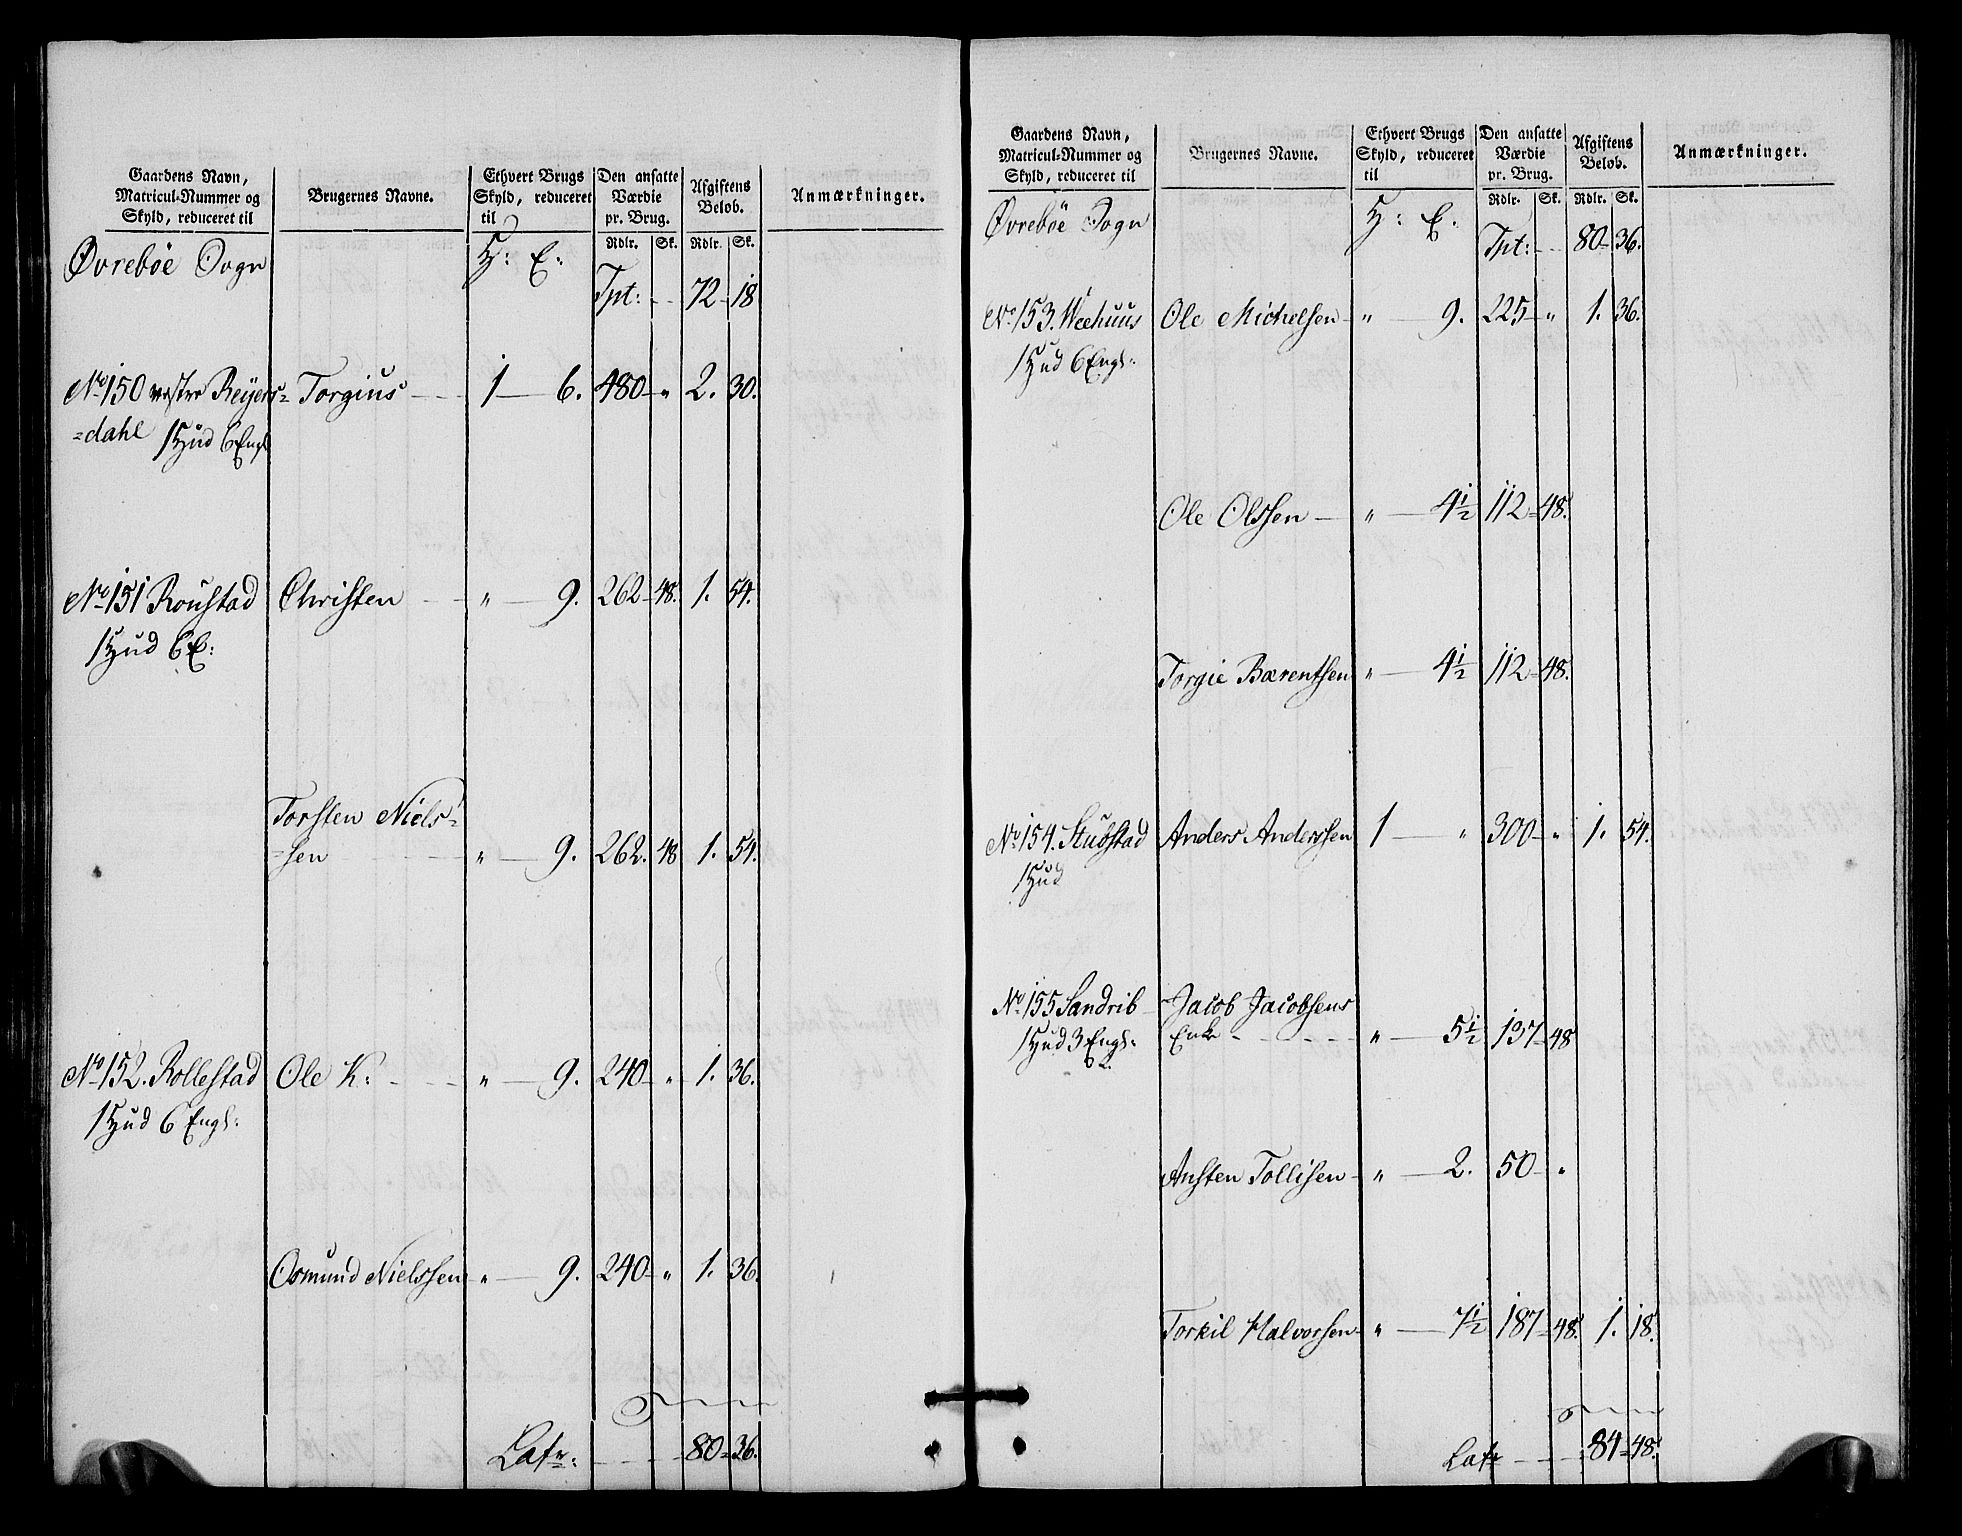 Gaardens Navn,
Matricul-Nummer og
Skyld, reduceret til
Brugernes Navne.
Ethvert Brugs
Skyld, reduceret
til
Den ansatte
Værdie
pr. Brug.
Afgiftens
Beløb.
Anmærkninger.
Rdlr. Sk. Rdlr. Sk.
Øvrebøe Sogn H: E:
Tpt: - - 72 - 18
No 150 vestre Reijers= Torgius - - - 1 - 6. 480 - " 2. 30.
=dahl 1 Hud 6 Engl
No 151 Roustad Christen - - " - 9. 262 - 48. 1. 54.
1 Hud 6 E:
Torsten Niels=
=sen - - - " - 9. 262. 48 1. 54.
No 152. Rollestad Ole K: - - - " - 9. 240 - " 1. 36.
1 Hud 6 Engl:
Osmund Nielssen " - 9. 240 - " 1. 36.
Latr: - - - 80 = 36.
Gaardens Navn,
Matricul-Nummer og
Skyld, reduceret til
Brugernes Navne.
Ethvert Brugs
Skyld, reduceret
til
Den ansatte
Værdie
pr. Brug.
Afgiftens
Beløb.
Anmærkninger.
Rdlr. Sk. Rdlr. Sk.
Øvrebøe Sogn H: E:
Tpt: - - 80 - 36.
No 153. Weehuus Ole Michelsen - " - 9. 225 - " 1. 36.
1 Hud 6 Engl:
Ole Olssen - " - 4½ 112 - 48.
Torgie Bærentsen " - 4½ 112 - 48.
No 154. Stubstad Anders Anderssen 1 - " 300 - " 1. 54.
1 Hud
No 155 Sandrib Jacob Jacobsens
1 Hud 3 Engl: Enke - - - - " - 5½ 137 - 48
Ansten Tollisen - " - 2. 50 - "
Torkil Halvorsen - " - 7½ 187 - 48. 1. 18.
Latr - - - 84 - 48.